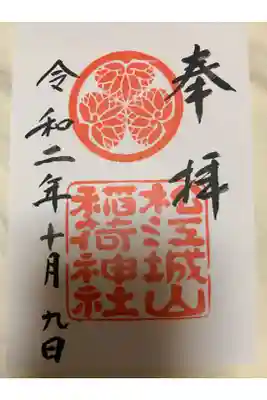 奉拝
松江城山
稲荷神社
令和二年十月九日